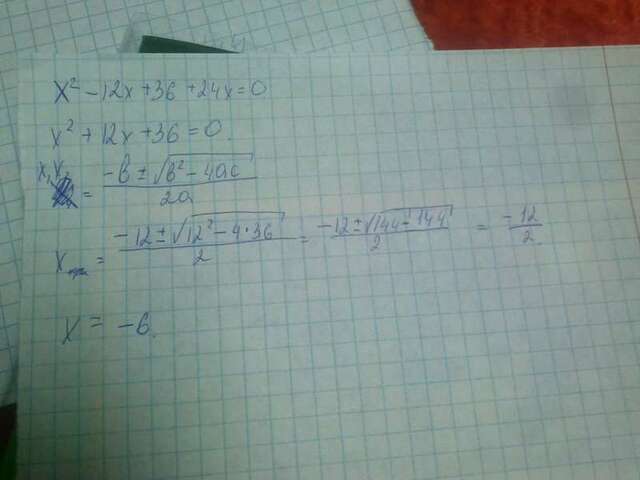 x² - 12x + 36 + 24x = 0
x² + 12x + 36 = 0.
x₁x₂ = (-b ± √(b² - 4ac)) / 2a
x = (-12 ± √(12² - 4·36)) / 2 = (-12 ± √(144 - 144)) / 2 = -12/2
x = -6.